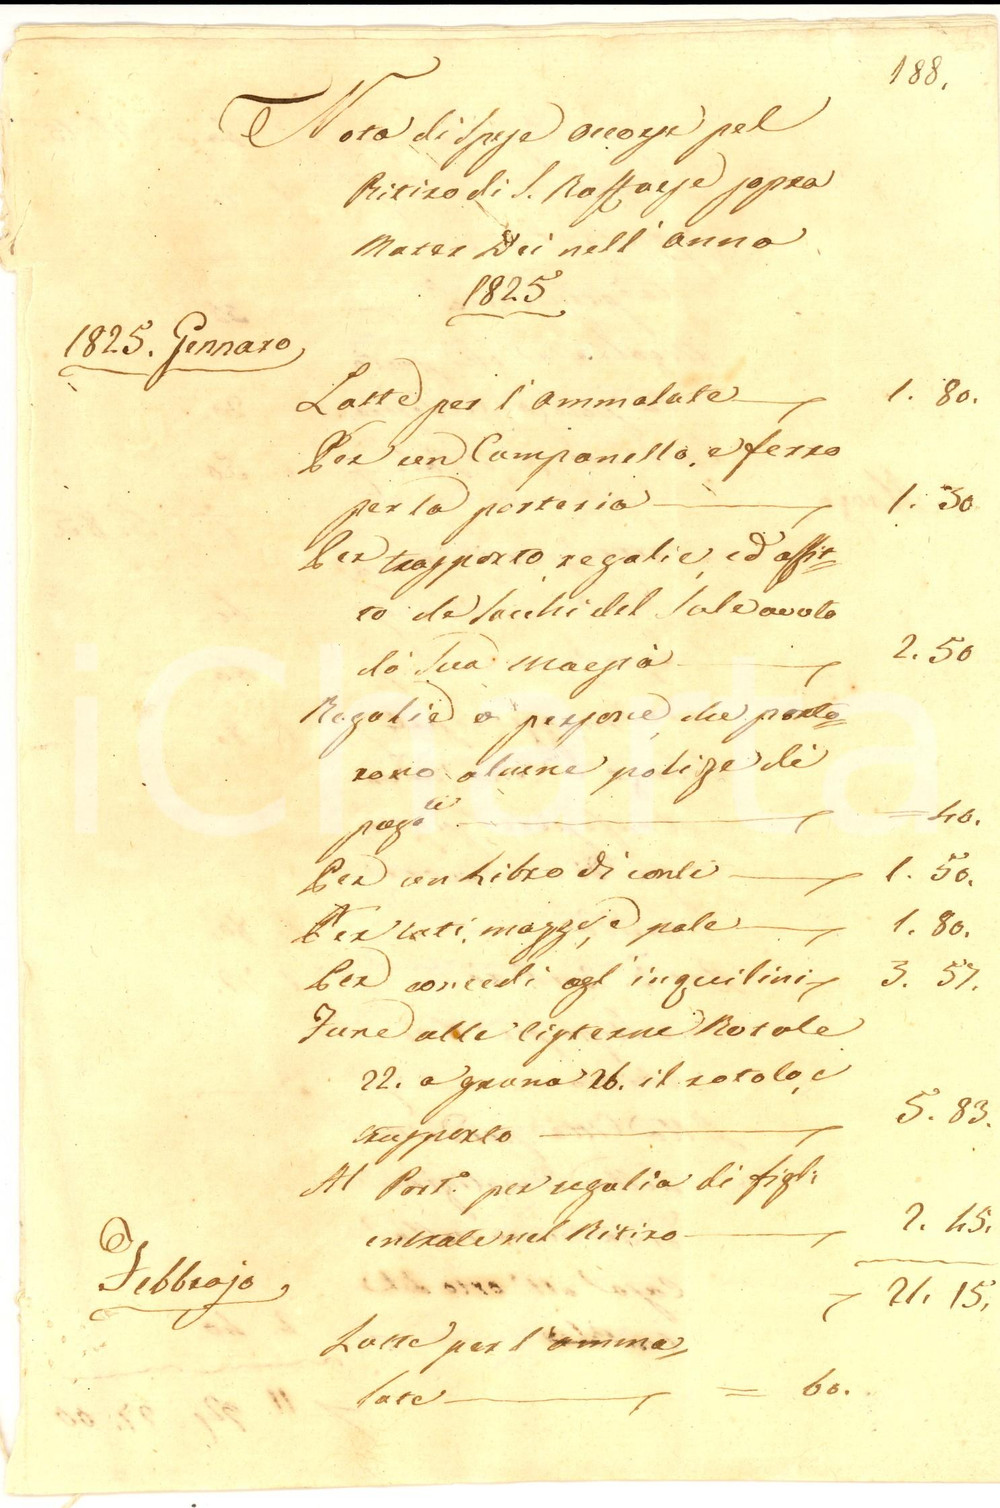 188.
Nota di spese occorse pel
Ritiro di S. Raffaele sopra
Mater Dei nell'anno
1825
1825. Gennaro
Latte per l'ammalate 1. 80.
Per un Campanello, e ferro
per la porteria 1. 30
Per trasporto regalie, ed affit=
to de sacchi del sale avuto
da Sua Maestà 2. 50
Regalie a persone, che porta=
rono alcune polize di
pag.ti = 40.
Per un Libro di conti 1. 50.
Per mazze, e pale 1. 80.
Per concedi agl'inquilini 3. 57.
Fune alle cisterne Rotole
22. a grana 26. il rotolo, e
trasporto 5. 83.
Al Port.e per regalia di figli
entrate nel Ritiro 2. 45.
21. 15.
Febbrajo
Latte per l'amma=
late = 60.
iCharta